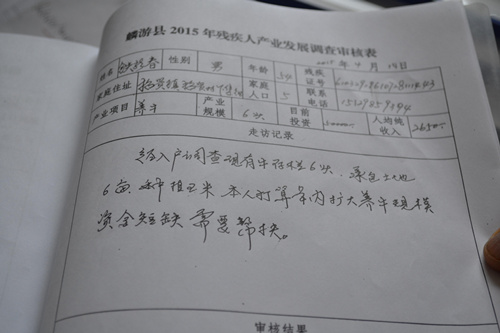 麟游县2015年残疾人产业发展调查审核表
2015年4月18日
姓名 春 性别 男 年龄 54 残疾证号
家庭住址 家庭人口 5 联系电话
产业项目 养牛 产业规模 6头 目前投资 人均纯收入 2650
走访记录
经入户调查现有牛存栏6头，承包土地
6亩，种植玉米，本人打算年内扩大养牛规模
资金短缺 需要帮扶。
审核结果